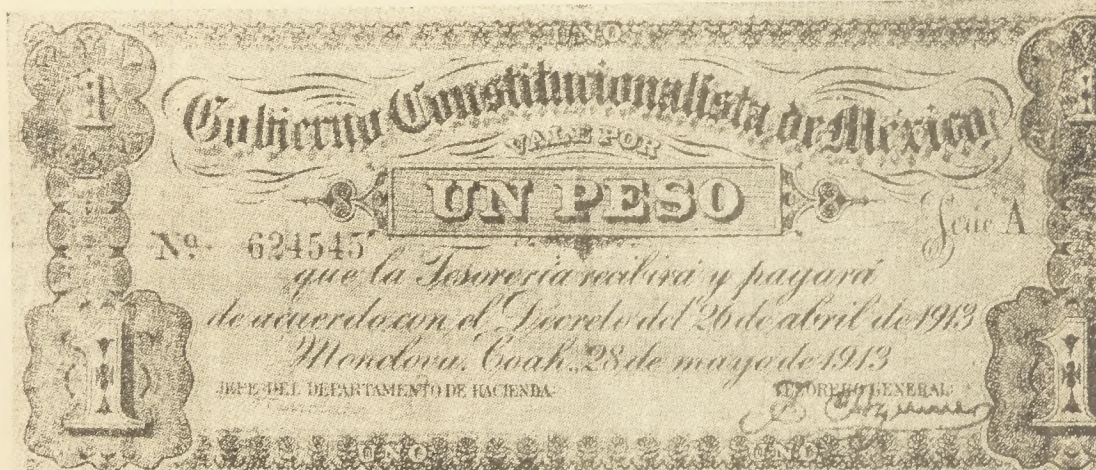 UNO
1
1
Gobierno Constitucionalista de México
VALE POR
UN PESO
Serie A
Nº 624545
que la Tesorería recibirá y pagará
de acuerdo con el Decreto del 26 de abril de 1913
Monclova, Coah., 28 de mayo de 1913
JEFE DEL DEPARTAMENTO DE HACIENDA
TESORERO GENERAL
1
1
UNO
UNO